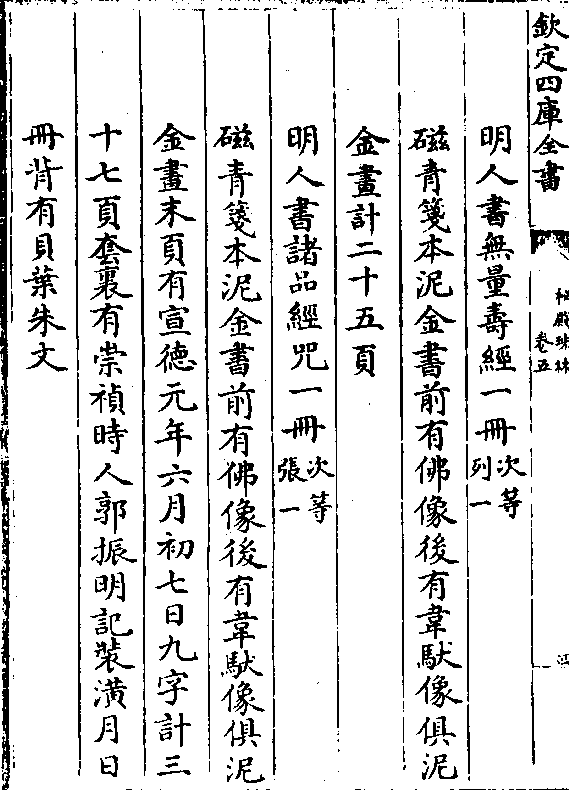 欽定四庫全書
秘殿珠林
卷五
明人書無量壽經一冊次等
列一
磁青箋本泥金書前有佛像後有韋馱像俱泥
金畫計二十五頁
明人書諸品經咒一冊次等
張一
磁青箋本泥金書前有佛像後有韋馱像俱泥
金畫末頁有宣德元年六月初七日九字計三
十七頁套裏有崇禎時人郭振明記裝潢月日
冊背有貝葉朱文